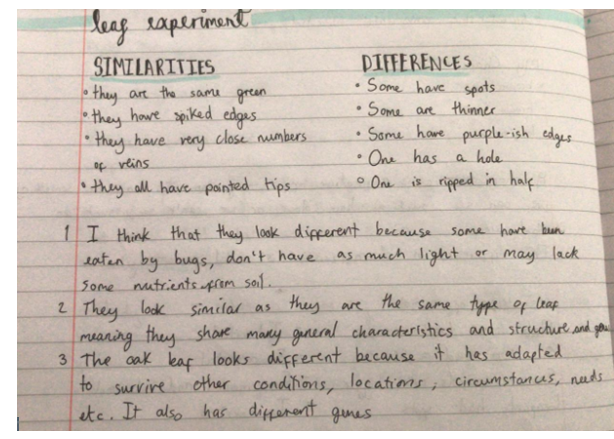 leaf experiment
SIMILARITIES
• they are the same green
• they have spiked edges
• they have very close numbers
of veins
• they all have pointed tips
DIFFERENCES
• Some have spots
• Some are thinner
• Some have purple-ish edges
• One has a hole
• One is ripped in half
1 I think that they look different because some have been
eaten by bugs, don't have as much light or may lack
some nutrients from soil.
2 They look similar as they are the same type of leaf
meaning they share many general characteristics and structure and
3 The oak leaf looks different because it has adapted
to survive other conditions, locations, circumstances, needs
etc. It also has different genes